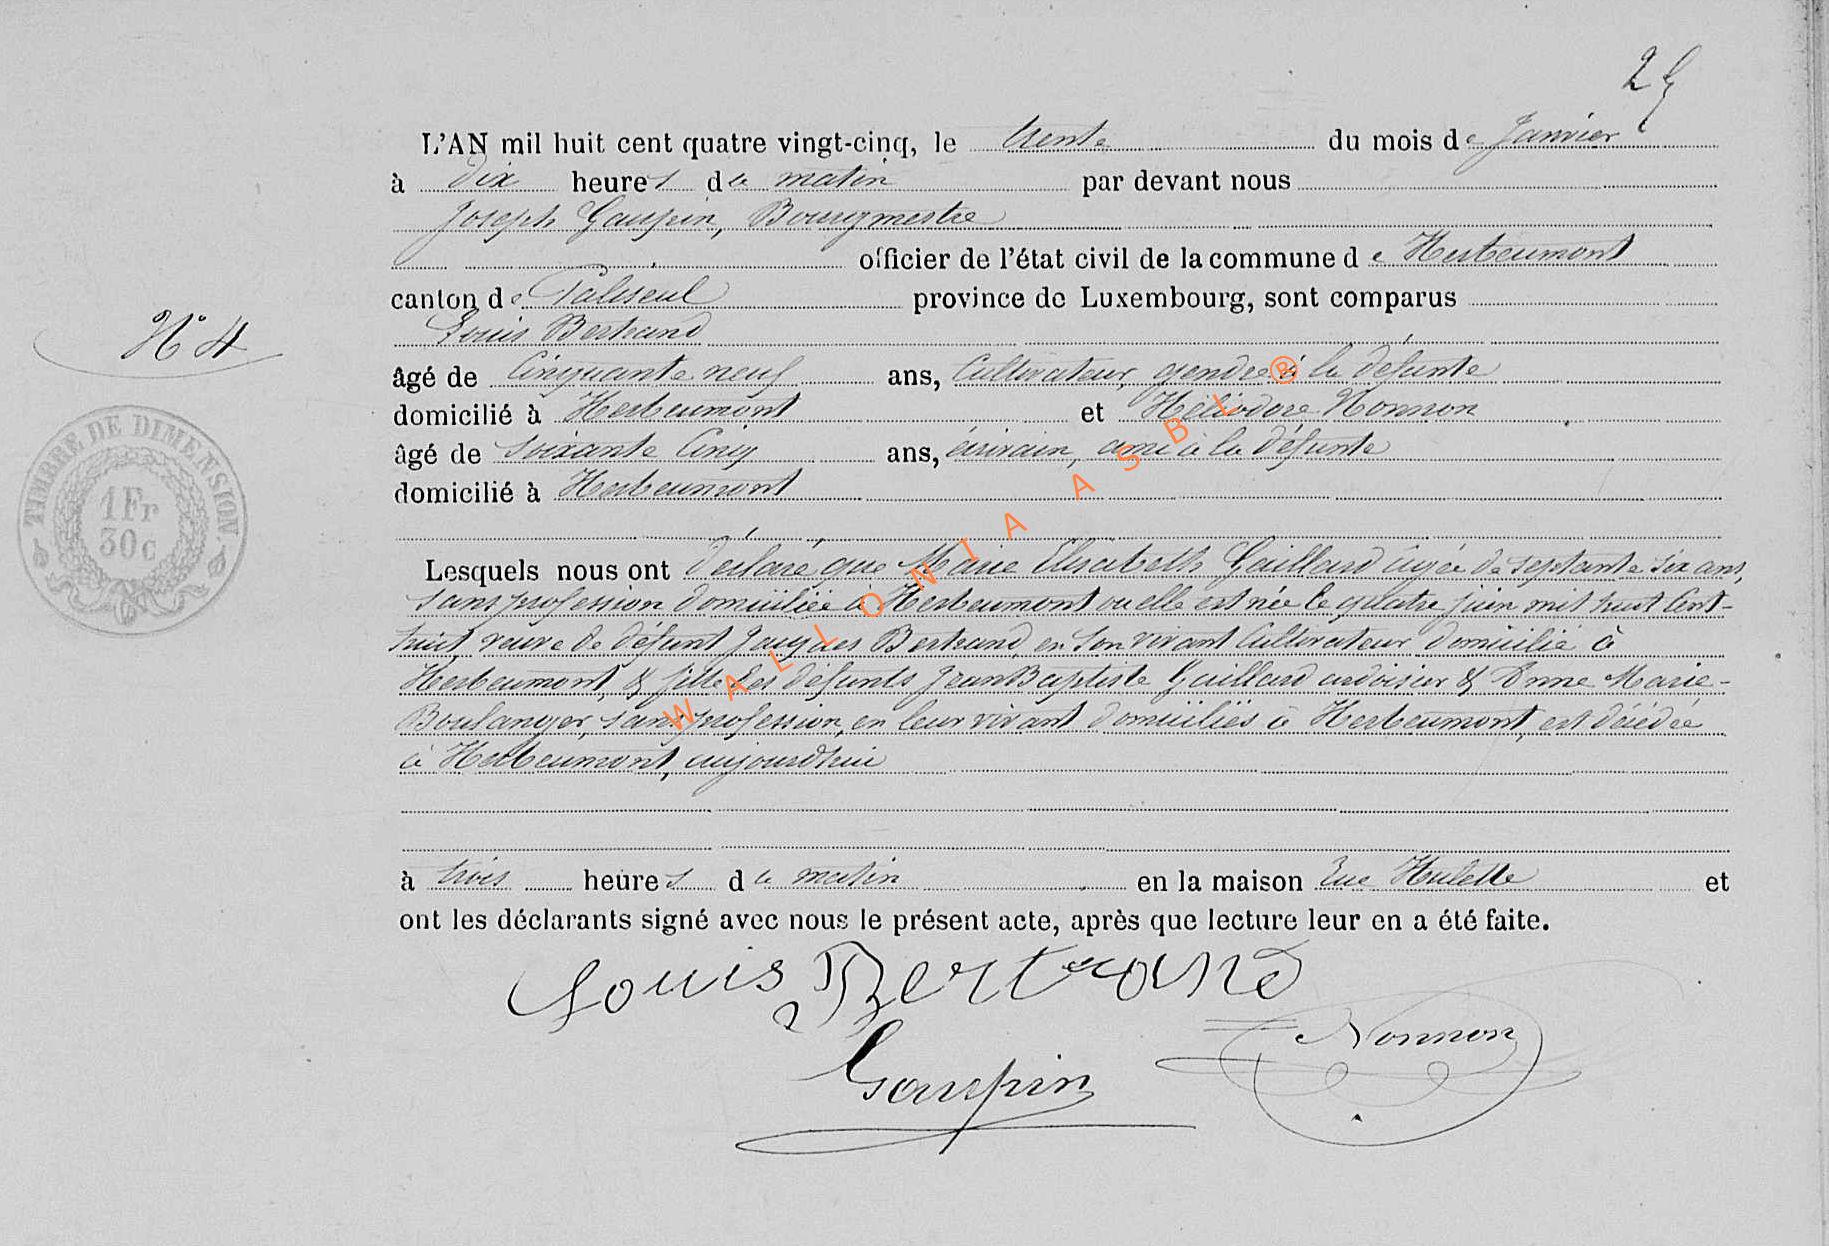 25
L'AN mil huit cent quatre vingt-cinq, le trente du mois de Janvier
à dix heures du matin par devant nous
Joseph Gaupin, Bourgmestre
officier de l'état civil de la commune de Herbeumont
canton de Paliseul province de Luxembourg, sont comparus
Louis Bertrand
N° 4
âgé de Cinquante neuf ans, Cultivateur, gendre à la défunte
domicilié à Herbeumont et Héliodore Nonnon
âgé de soixante Cinq ans, écrivain, ami à la défunte
domicilié à Herbeumont
TIMBRE DE DIMENSION.
1Fr
30c
Lesquels nous ont déclaré que Marie Elisabeth Gaillard agée de septante six ans,
sans profession domiciliée à Herbeumont ou elle est née le quatre juin mil huit Cent-
huit veuve de défunt Jacques Bertrand, en son vivant Cultivateur domicilié à
Herbeumont, & fille des défunts Jean Baptiste Gaillard ardoisier & Anne Marie-
Boulanger, sans profession, en leur vivant domiciliés à Herbeumont, est décédée
à Herbeumont, aujourd'hui
à trois heures du matin en la maison rue Hulette et
ont les déclarants signé avec nous le présent acte, après que lecture leur en a été faite.
Louis Bertrand
Nonnon
Gaupin
WALLONIA ASBL ®